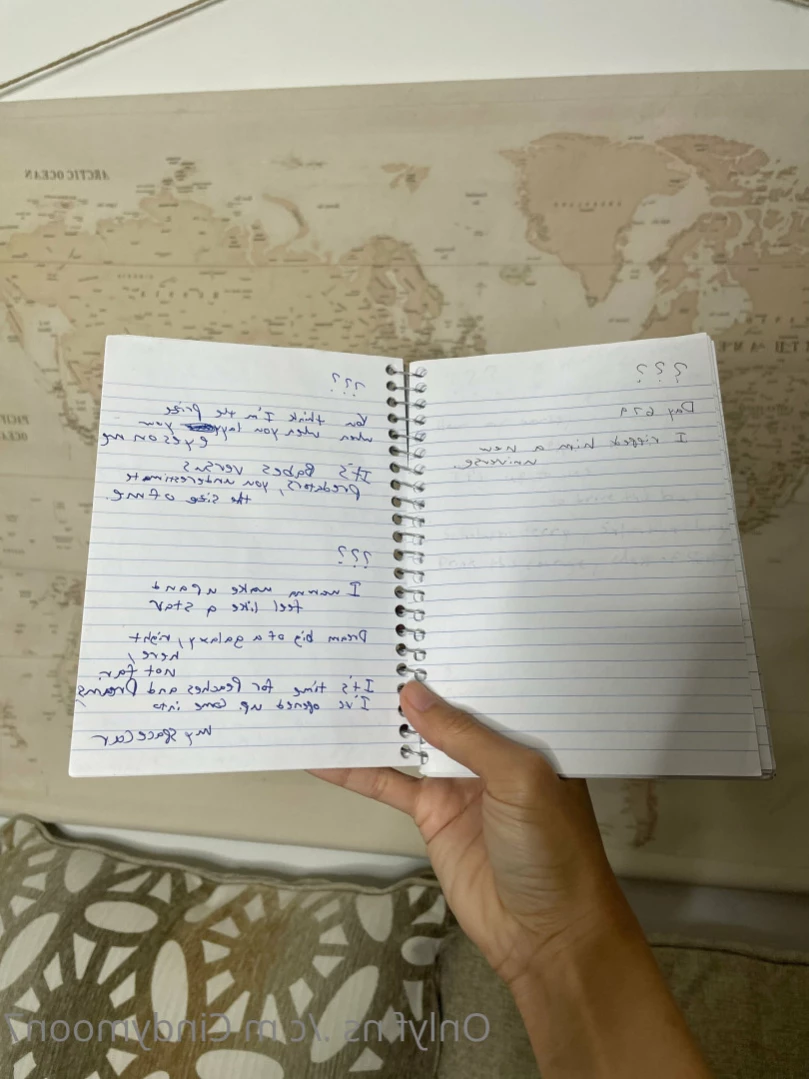 ARCTIC OCEAN
GREENLAND
???
Day 679
I ripped him a new
universe.
???
You think I'm the prize
when you lay your
eyes on me
It's Babes versus
Predators, you underestimate
the size of me.
???
I wanna make up and
feel like a star
Dream big of a galaxy, right
here,
not far
It's time for Peaches and Dreams
I've opened up. Come into
my spacecar
Onlyfns ./c m Cindymoon7